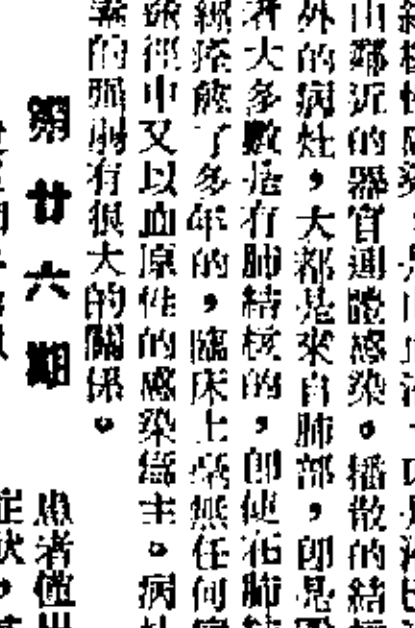 鄰近的器官連體感染。播散的結
外的病灶，大都是來自肺部，即是
者大多數是有肺結核的，即使在肺
經痊癒了多年的，臨床上毫無任何
途徑中又以血原性的感染為主。病
的强弱有很大的關係。
第廿六期
患者僅